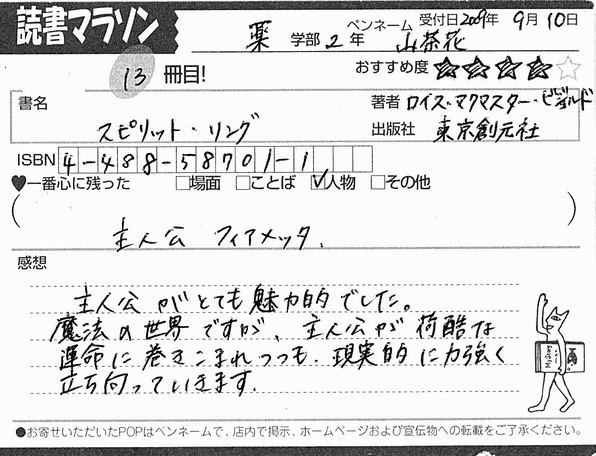 読書マラソン
薬 学部 2 年 ペンネーム 山茶花 受付日2009年 9月 10日
13 冊目! おすすめ度 ★★★★☆
書名 スピリット・リング
著者 ロイス・マクマスター・ビジョルド
出版社 東京創元社
ISBN 4-488-58701-1
♥一番心に残った □場面 □ことば ☑人物 □その他
( 主人公 フィアメッタ. )
感想
主人公がとても魅力的でした。
魔法の世界ですが、主人公が苛酷な
運命に巻きこまれつつも、現実的に力強く
立ち向っていきます.
●お寄せいただいたPOPはペンネームで、店内で掲示、ホームページおよび宣伝物への転載をご了承ください。